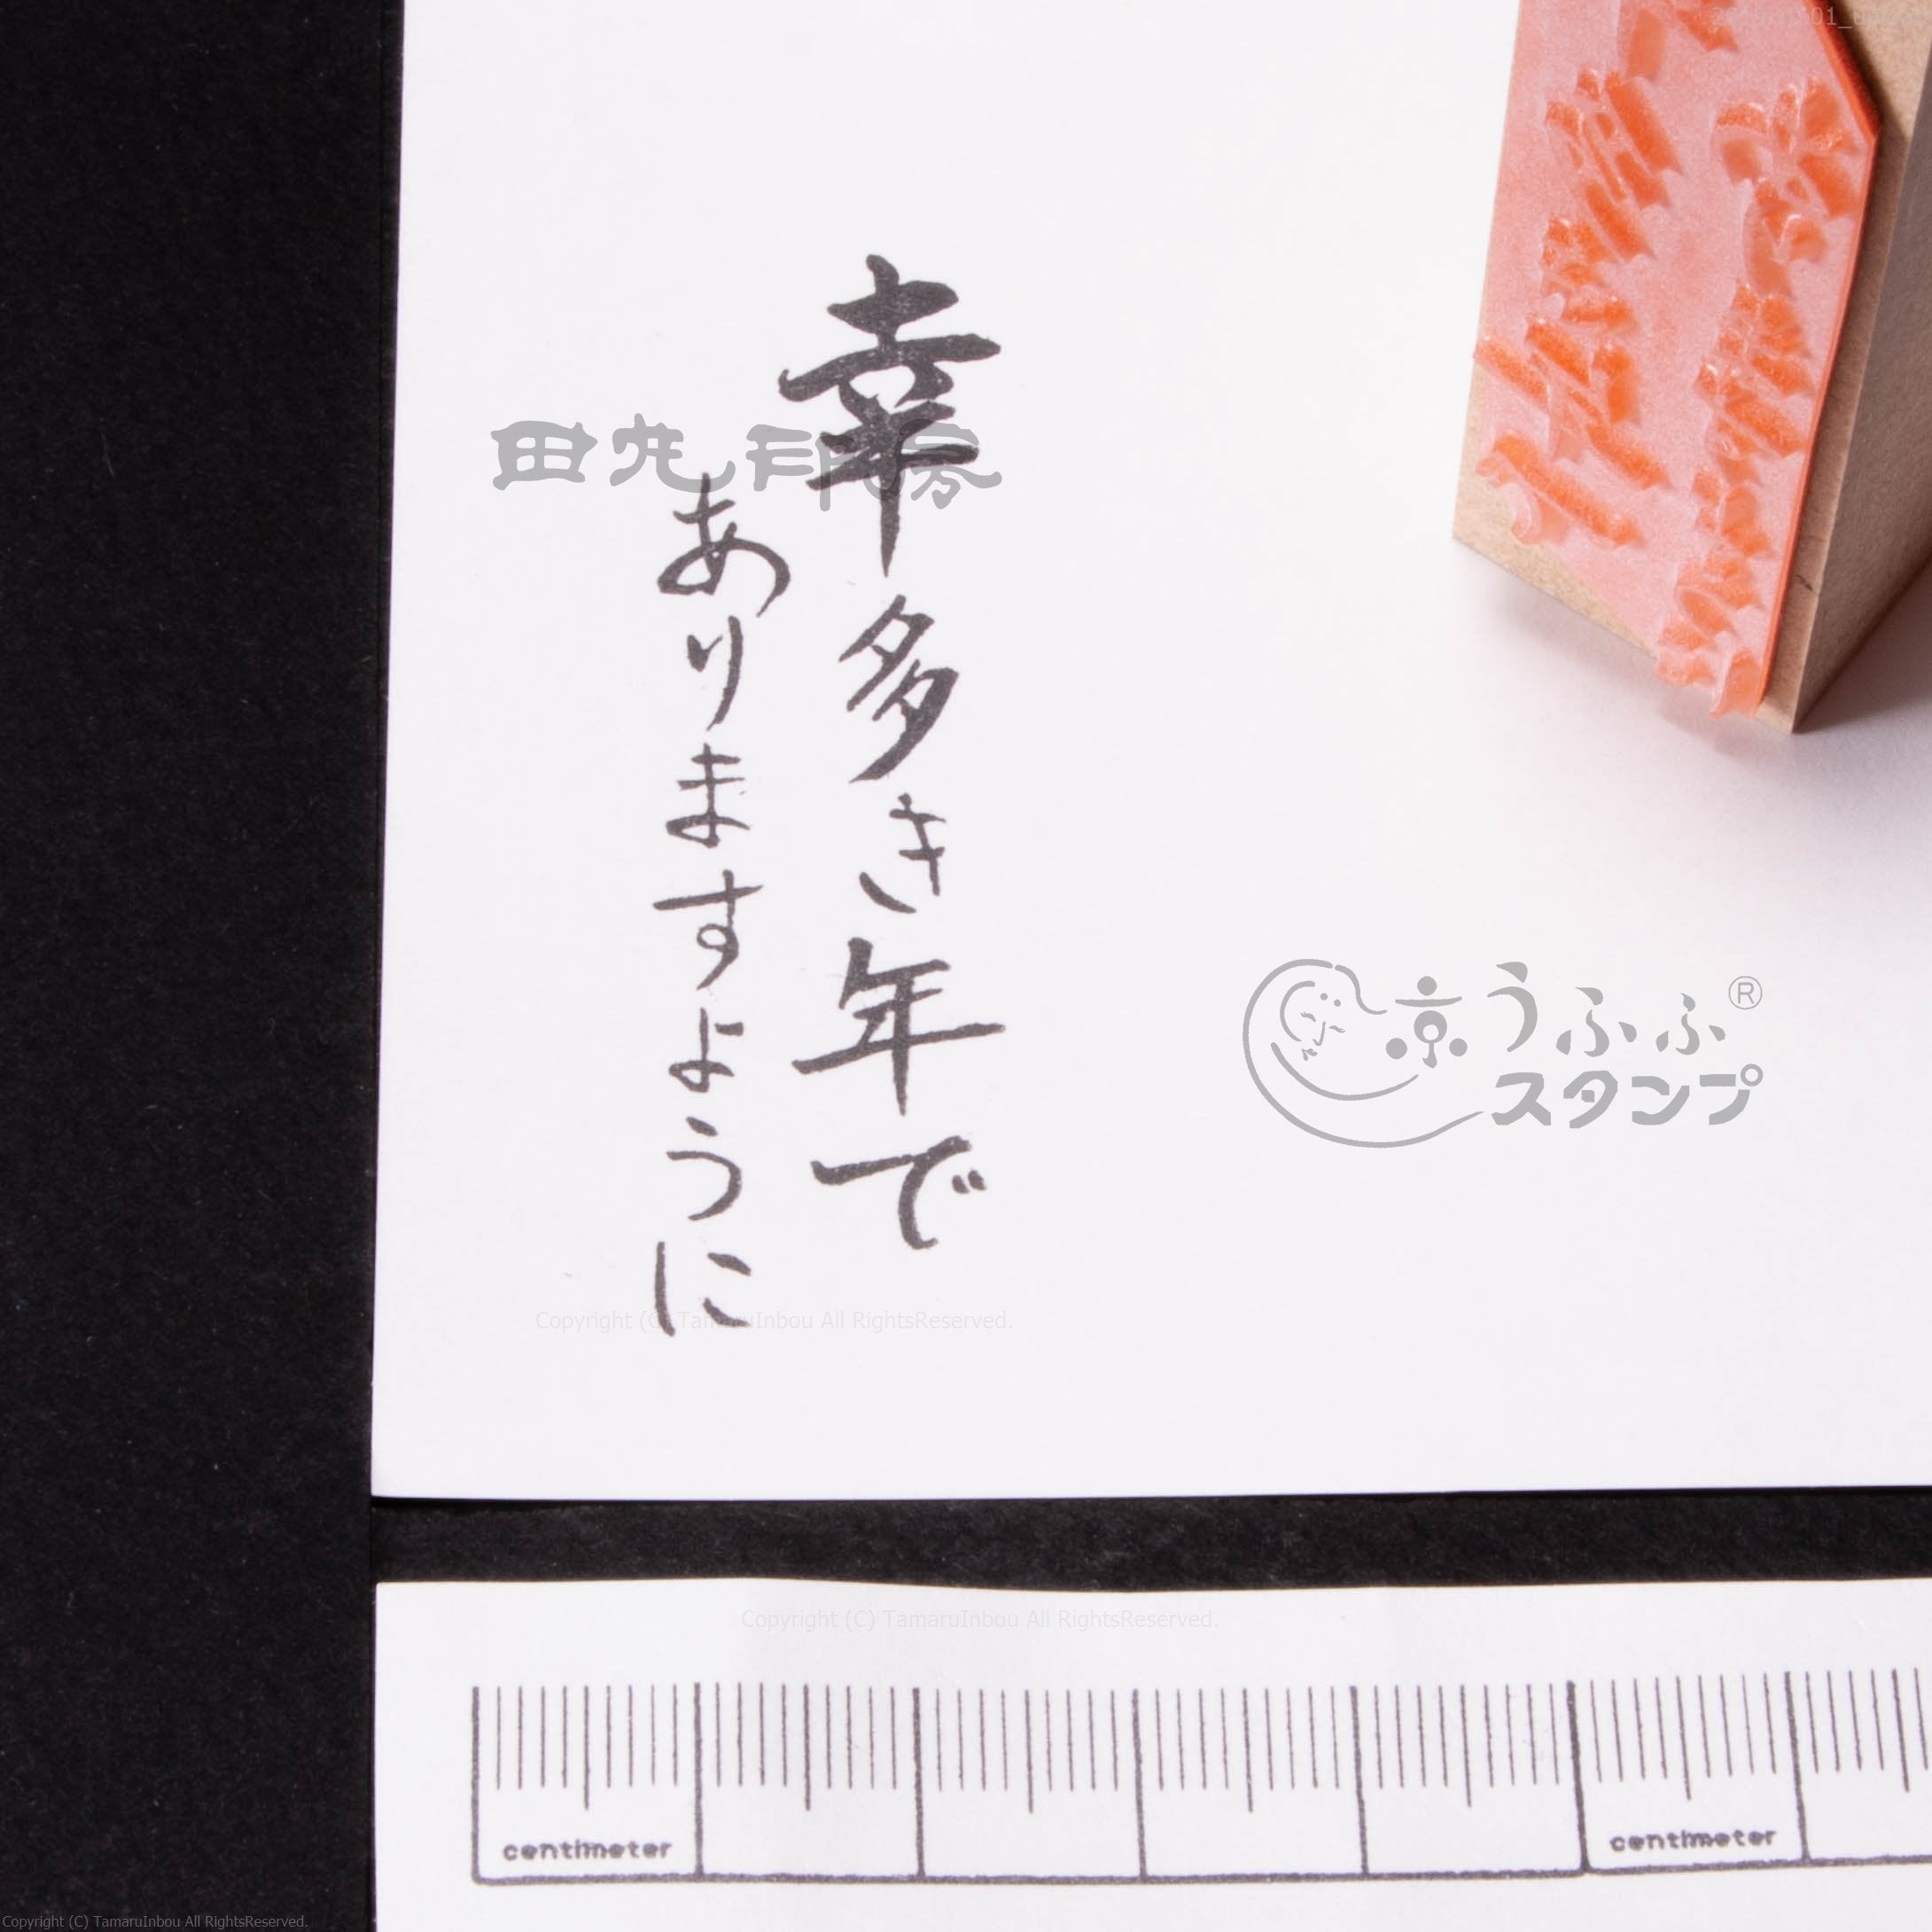 幸多き年で
ありますように
田丸印房
京うふふ®
スタンプ
Copyright (C) TamaruInbou All RightsReserved.
Copyright (C) TamaruInbou All RightsReserved.
centimeter
centimeter
Copyright (C) TamaruInbou All RightsReserved.